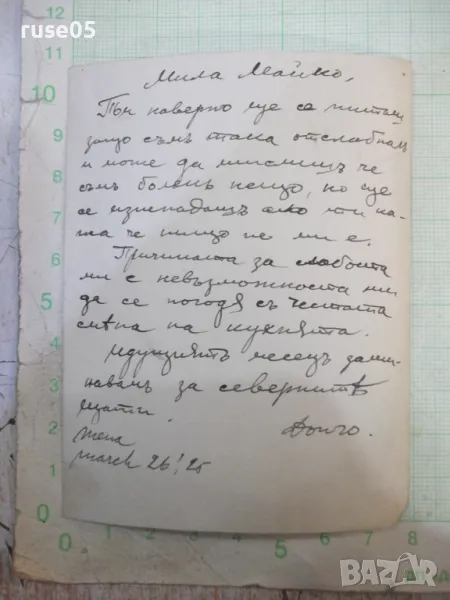 ruse05
Мила Майко,
Ти наверно ще се питаш
защо съмъ така отслабналъ
и може да мислишъ че
съмъ боленъ нещо, но ще
се излъгашъ ако ти ка-
жа че нищо не ми е.
Причината за слабостта
ми е невъзможността ми
да се погодя съ честата
смѣна на кухнята.
Идущиятъ месецъ зами-
навамъ за севернитѣ
щати.
Дончо.
march 26! 25
BAZAR